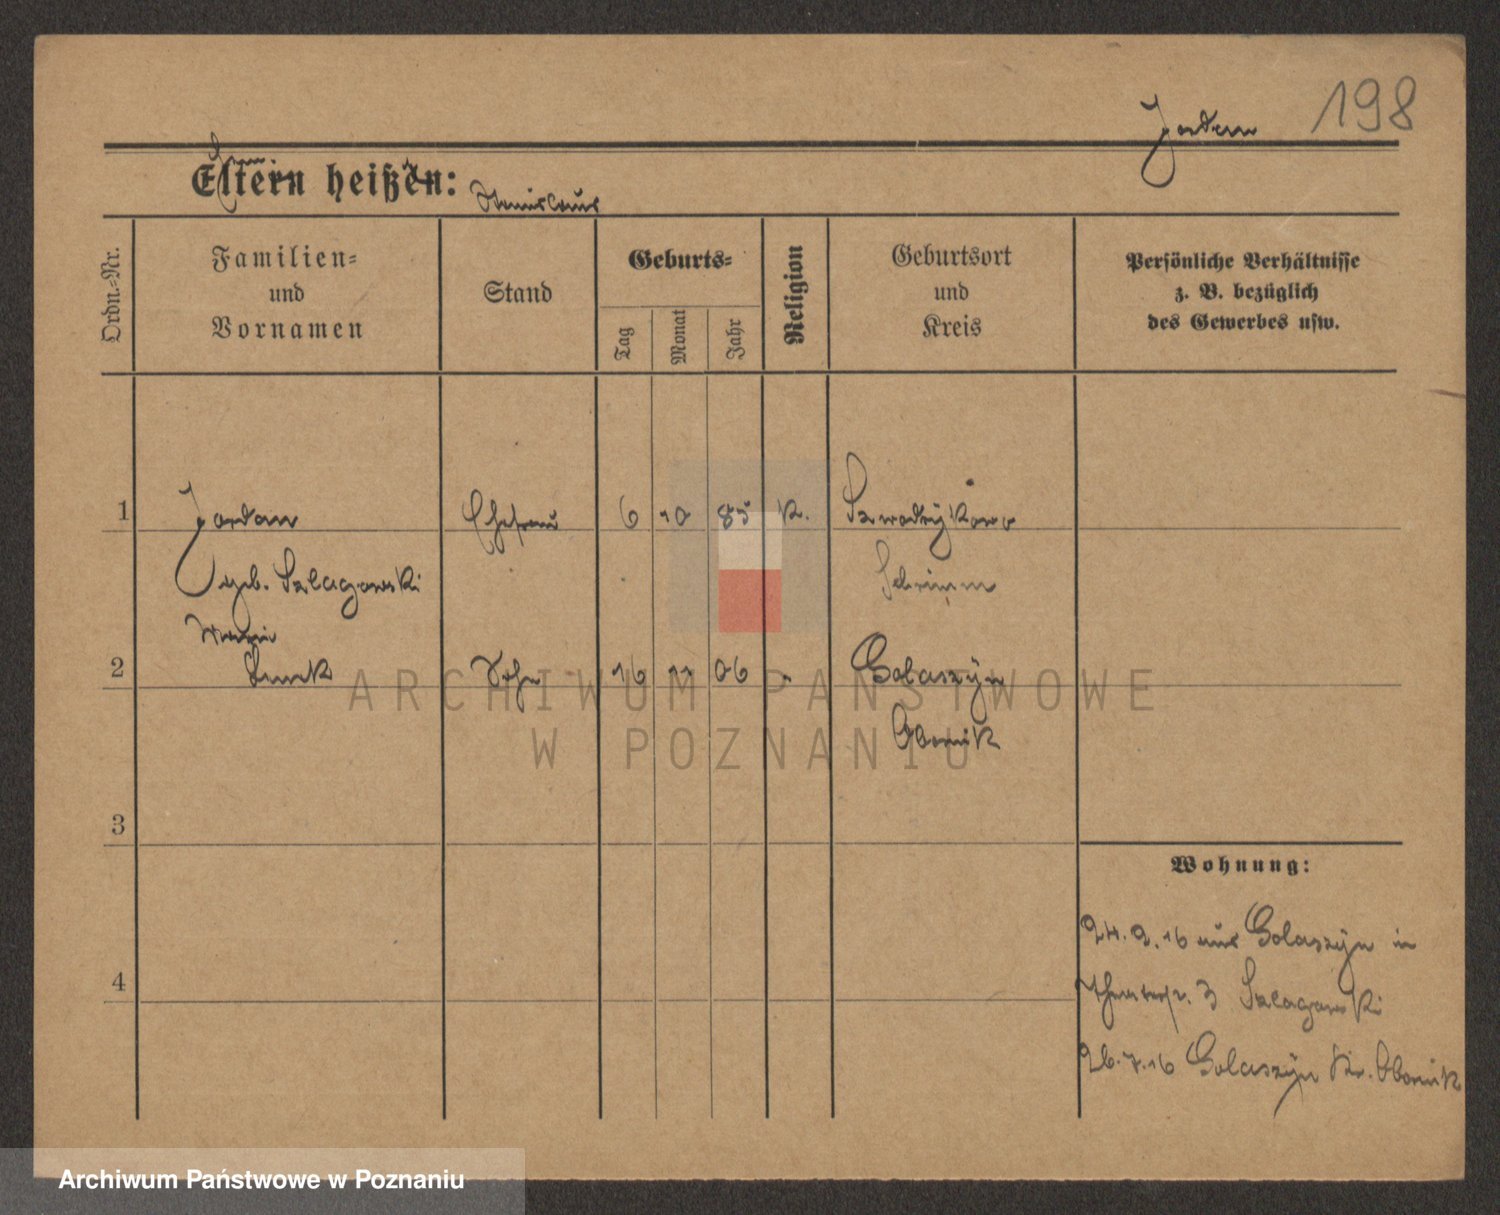 198
Jordan
Eltern heißen:
Stanislaus
Ordn.-Nr.
Familien-
und
Vornamen
Stand
Geburts-
Tag
Monat
Jahr
Religion
Geburtsort
und
Kreis
Persönliche Verhältnisse
z. B. bezüglich
des Gewerbes usw.
1 Jordan Ehefrau 6 10 85 K.
geb. Szlagowski Schrimm
2 Sohn 16 11 06 " Golaszyn
Obornik
ARCHIWUM PAŃSTWOWE
W POZNANIU
3
Wohnung:
24.2.16 aus Golaszyn in
4
3 Szlagowski
26.7.16 Golaszyn Kr. Obornik
Archiwum Państwowe w Poznaniu